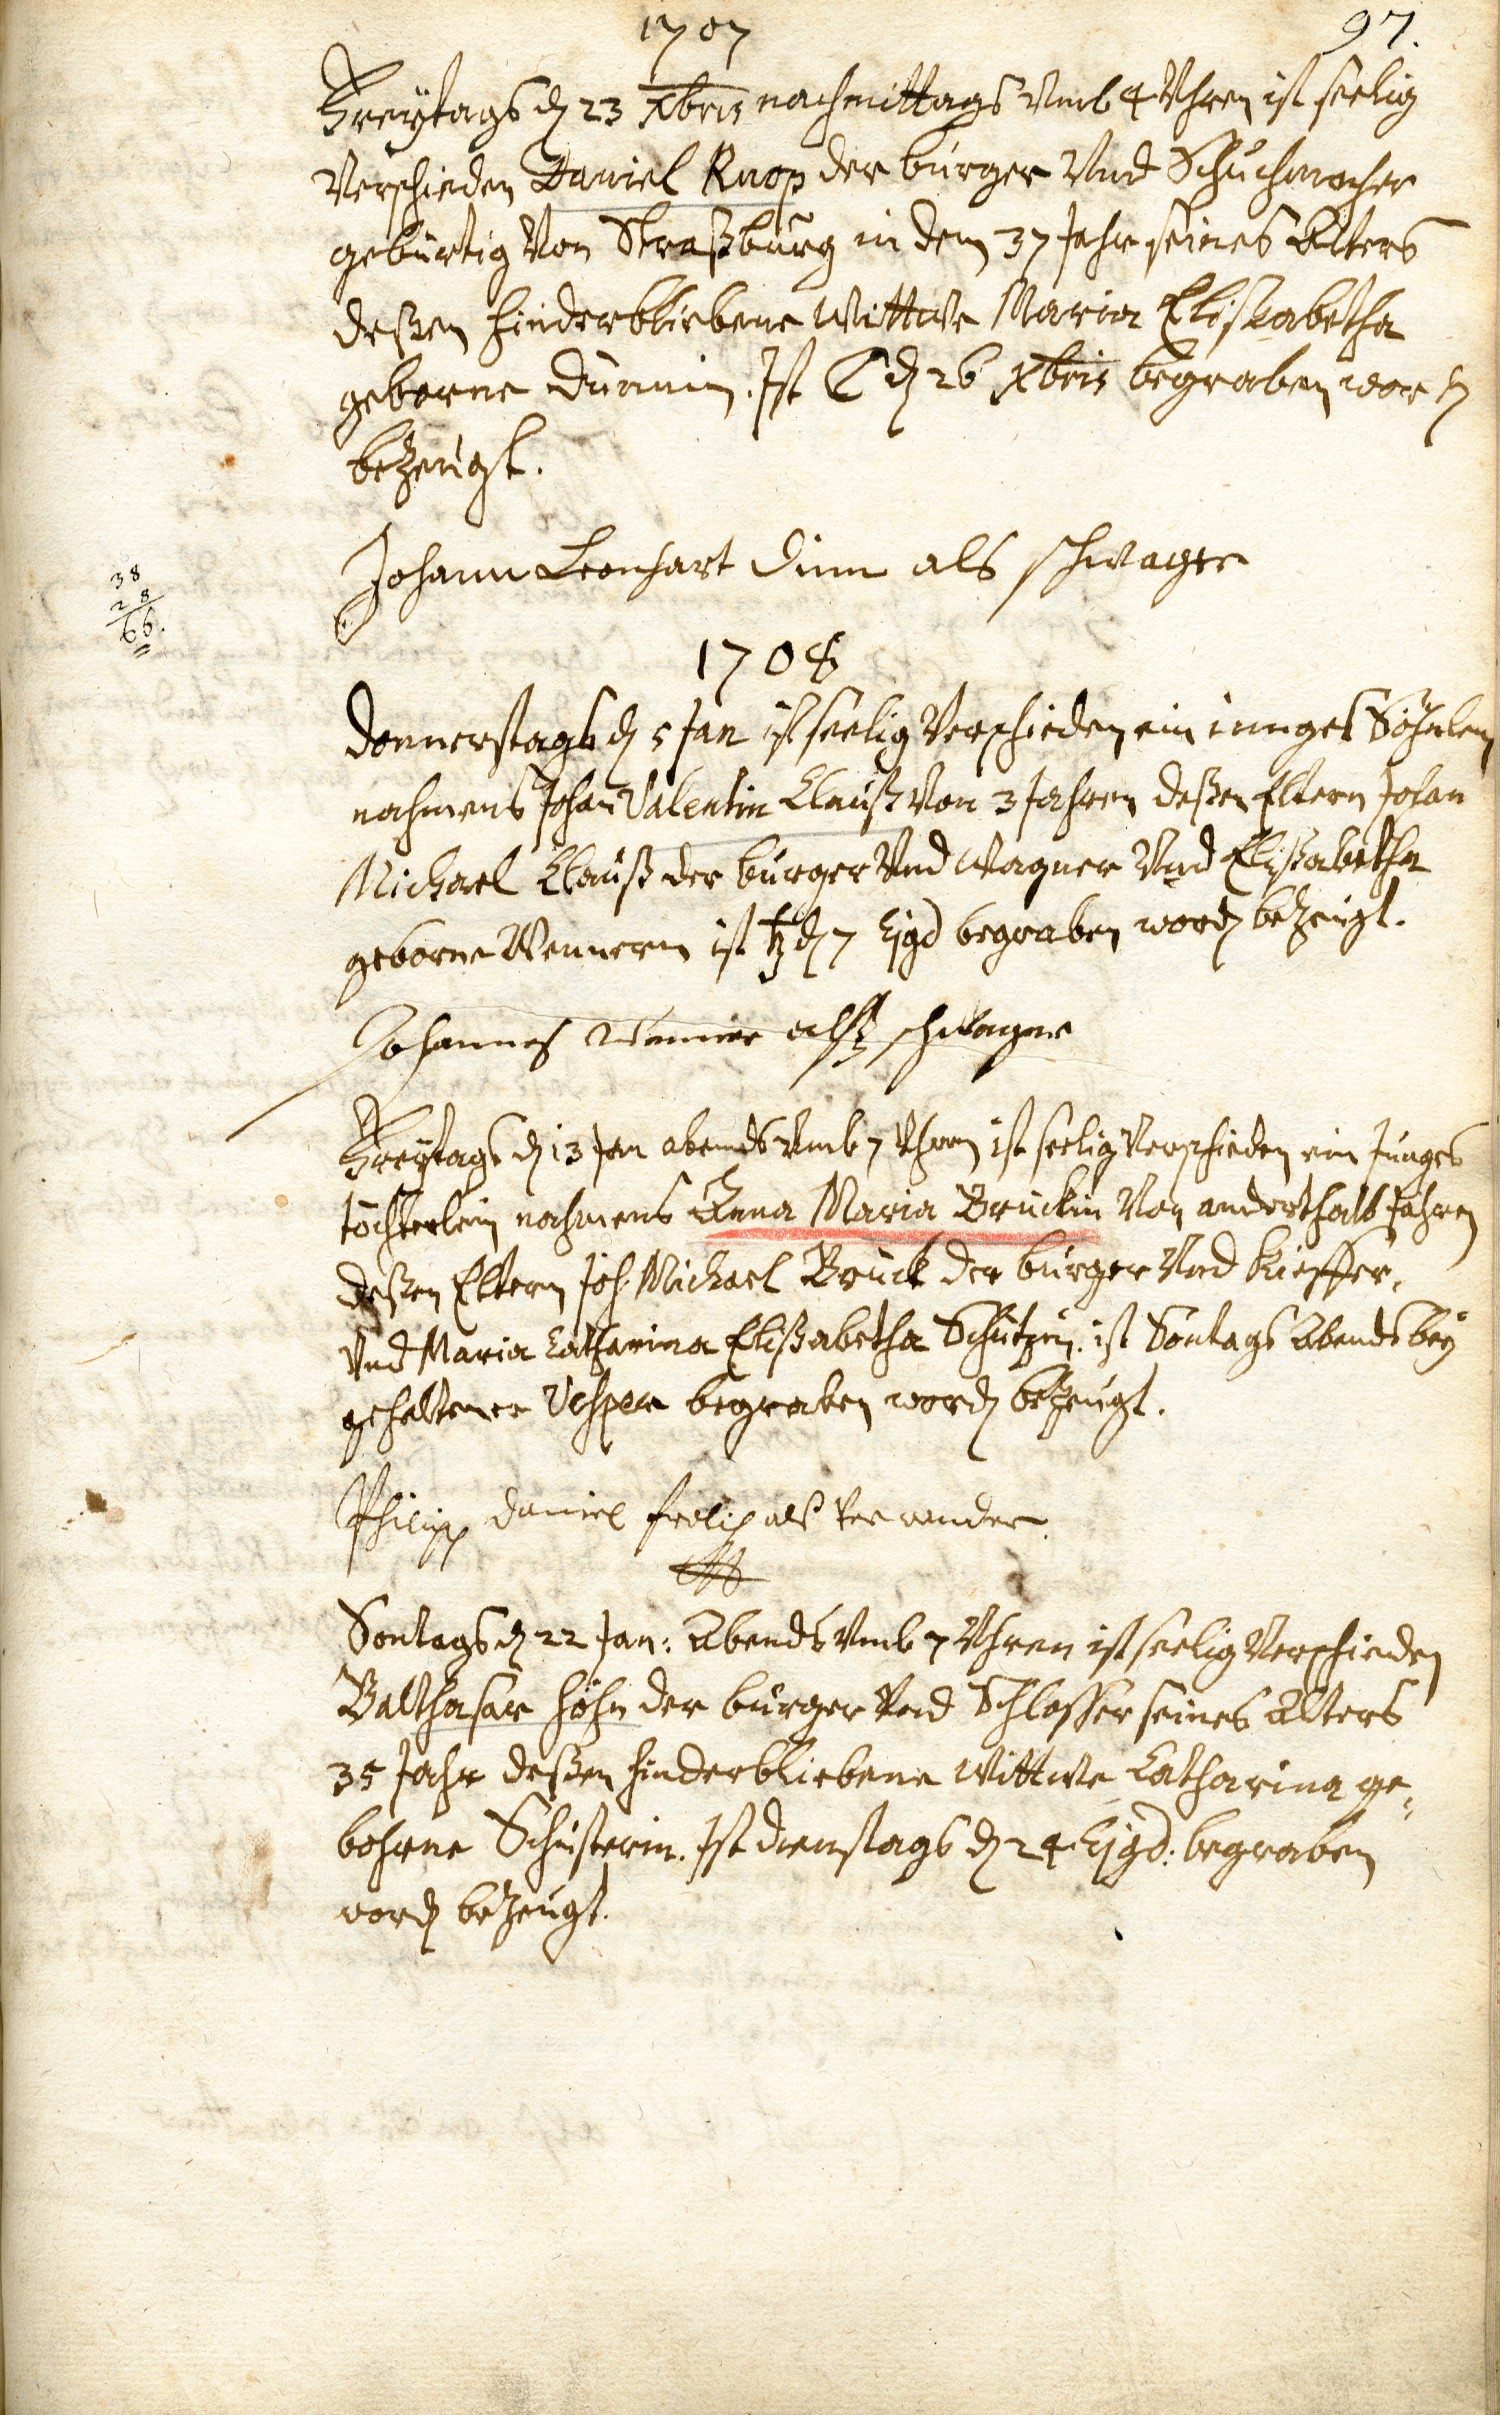 1707
97.
Freÿtags d 23 Xbris nachmittags Vmb 4 Vhren ist seelig
Verschieden Daniel Knop der burger Vnd Schuchmacher
gebürtig Von Straßburg in dem 37 Jahr seines Alters
deßen hinderbliebene Wittwe Maria Elisabetha
geborne Dünnin. Ist ☾ d 26 Xbris begraben word
bezeugt.
Johann Leonhart Dinn als schwager
38
28
66.
1708
Donnerstags d 5 Jan ist seelig Verschieden ein iunges Söhnlein
nahmens Johan Valentin Clauß Von 3 Jahren deßen Eltern Johan
Michael Clauß der burger Vnd Wagner Vnd Elißabetha
geborne Wennerin ist ♄ d 7 Ejgd begraben word bezeugt.
Johannes Wenner alß schwager
Freÿtags d 13 Jan abends Vmb 7 Vhren ist seelig Verschieden ein Junges
töchterlein nahmens Anna Maria Bruckin Von anderthalb Jahren
deßen Eltern Joh. Michael Bruck der burger Vnd Kieffer,
Vnd Maria Catharina Elißabetha Schützin. ist Sontags Abends beÿ
gehaltener Vesper begraben word bezeugt.
Philipp Daniel frölich als Verwander
Sontags d 22 Jan: Abends Vmb 7 Vhren ist seelig Verschieden
Balthasar Höhn der burger Vnd Schlosser seines Alters
35 Jahr deßen hinderbliebene Wittwe Catharina ge-
bohrne Schusterin. Ist dienstags d 24 Ejgd: begraben
word bezeugt.